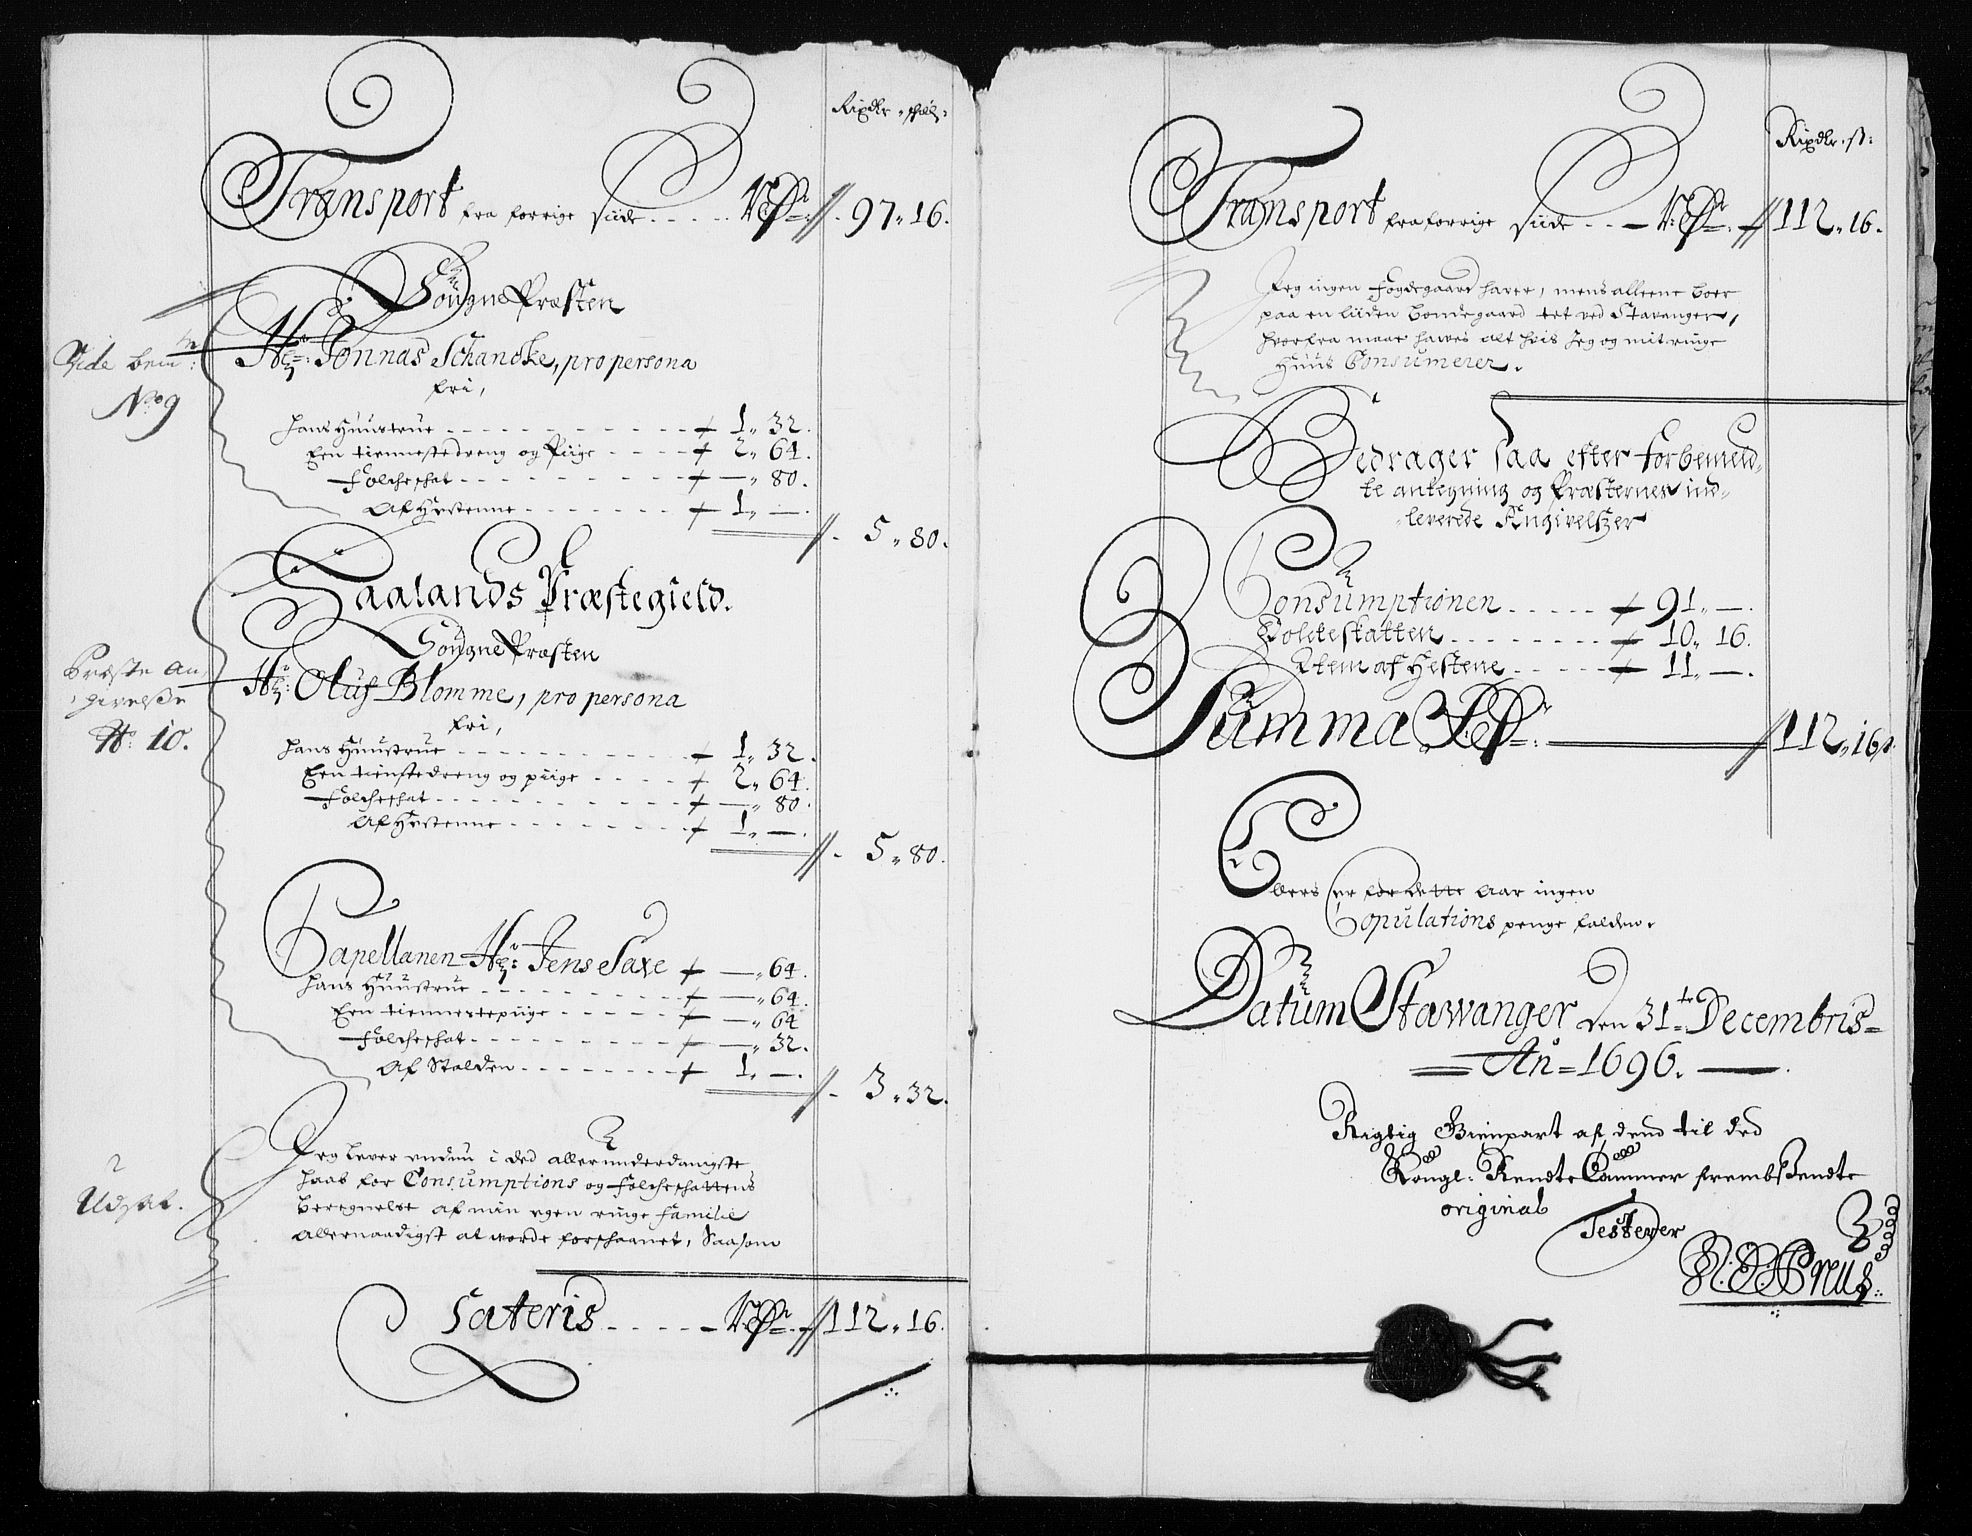 Rixdlr „ skil:
Transport fra forrige siide . . . . . 97 „ 16.
Sougne Præsten
Hr: Jonnas Schancke, pro persona
fri,
Vide bem:
No 9
hans Huustrue - - - - 1 „ 32.
Een tiennestedreng og Piige - - - - 2 „ 64.
Folcheschat - - - - — „ 80.
Af Hestenne - - - - 1 „ —.
5 „ 80.
Haalands Præstegield.
Sougne Præsten
Hr: Oluf Blomme, pro persona
fri,
Præste an
givelsze
No: 10.
hans Huustrue - - - - 1 „ 32.
Een tienstedreng og piige - - - - 2 „ 64.
Folcheschat - - - - — „ 80.
Af Hestenne - - - - 1 „ —.
5 „ 80.
Capellanen Hr: Jens Saxe — „ 64.
hans Huustrue - - - - — „ 64.
Een tiennestepiige - - - - — „ 64
Folcheschat - - - - — „ 32.
Af Stalden - - - - 1 „ —.
3 „ 32.
Jeg lever endnu i ded allerunderdanigste
haab for Consumptions og Folcheschattens
Beregnelse af min egen ringe Familie
Allernaadigst at worde forschaanet, Saasom
Udsat.
Lateris - - - - 112 „ 16.
Rixdlr. s:
Transport fra forrige siide . . — 112 „ 16.
Jeg ingen Fogdegaard haver, mens alleene boer
paa en liiden Bondegaard tet ved Stavanger,
hvorfra maae hawes alt hvis Jeg og mit ringe
Huus Consumerer.
Bedrager saa efter forbemeld„
te antegning og Præsternes ind„
„leverede Angivelszer
Consumptionen . . . . . 91 „ —.
Folckeskatten . . . . . 10 „ 16.
Item af Hestene . . . . . 11 „ —.
Summa 112 „ 16 s.
Ellers er for dette Aar ingen
Copulations penge falden.
Datum Stawanger den 31te Decembris
Ao 1696.
Rigtig Gienpart af dend til ded
Kongl: Rendte Cammer frembsendte
original
Testerer